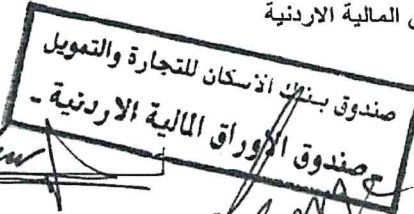 المالية الاردنية
صندوق بنك الاسكان للتجارة والتمويل
صندوق الاوراق المالية الاردنية -